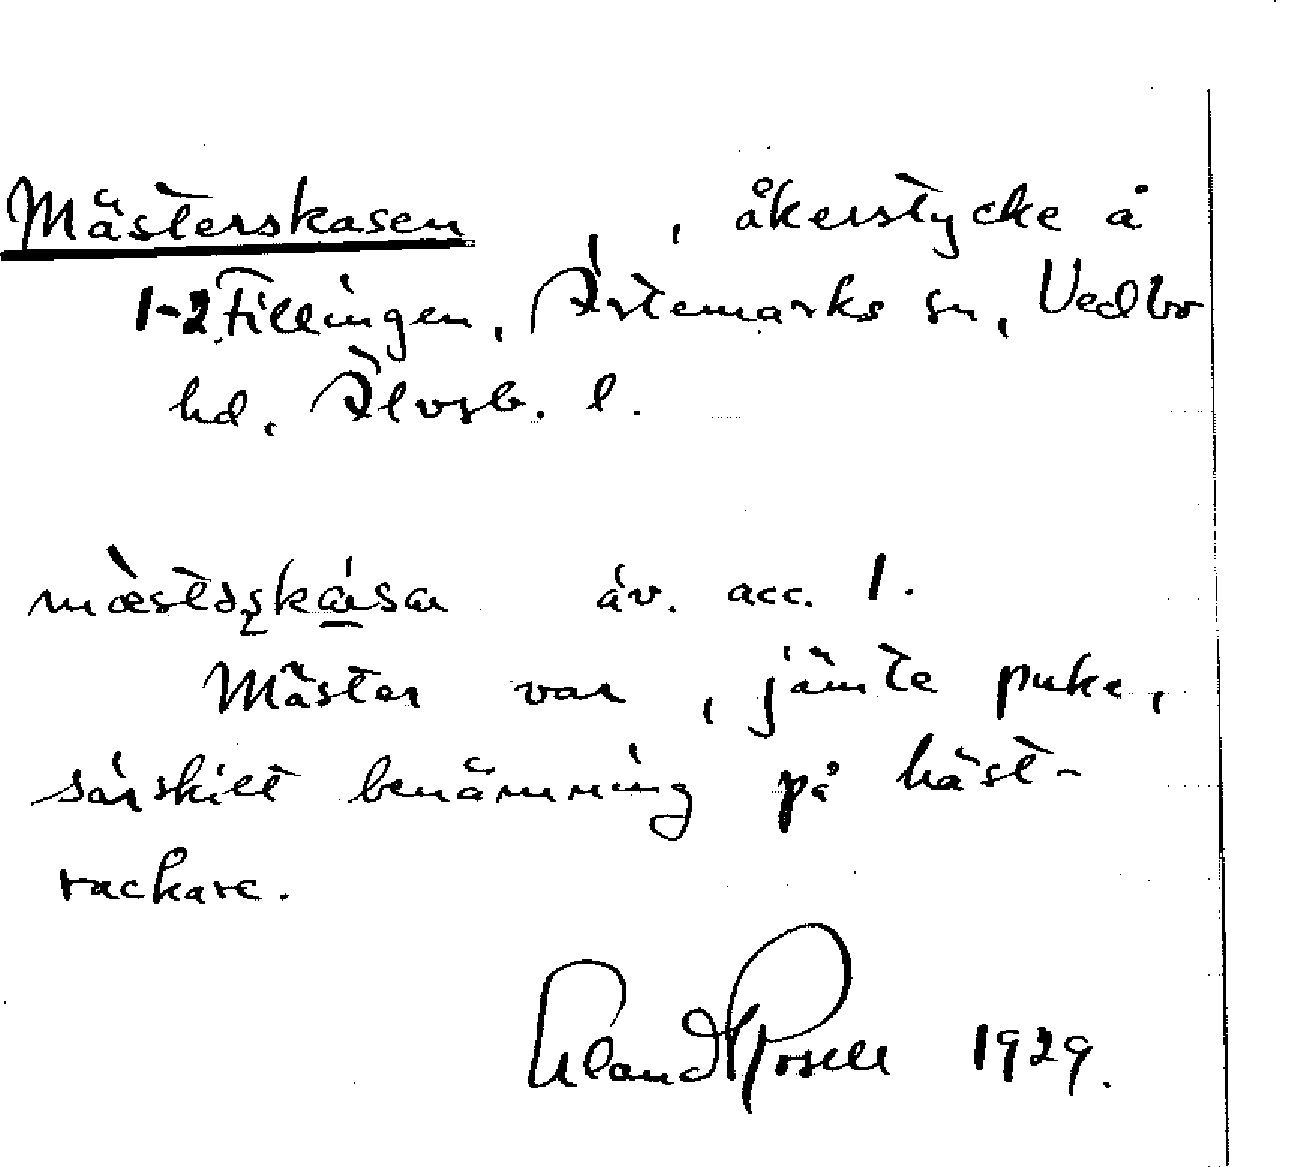 Mästerskasen , åkerstycke å
1-2 Fillingen, Ärtemarks sn, Vedbo
hd, Älvsb. l.
mæ̀stəşkása äv. acc. 1.
Mäster var, jämte puke,
särskilt benämning på häst-
rackare.
Erland Rosell 1929.